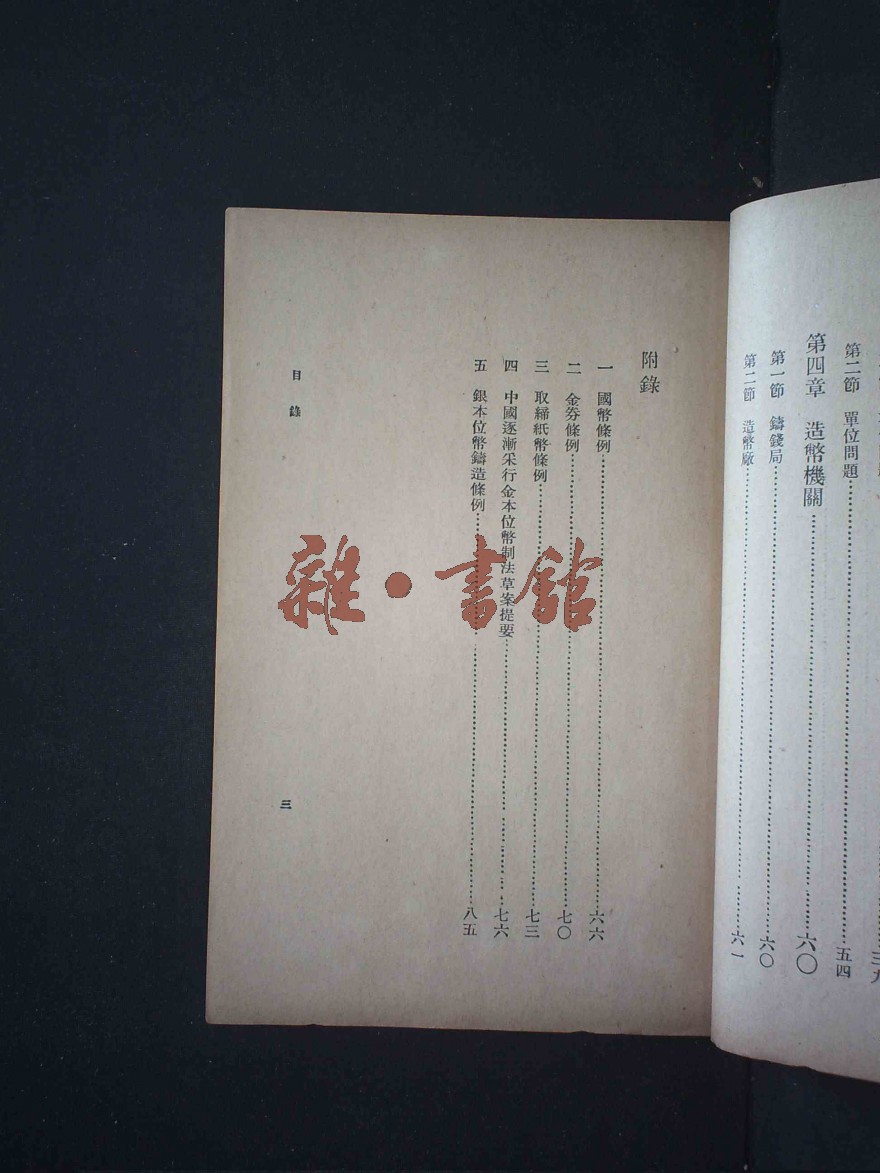 第二節 單位問題 五四
第四章 造幣機關 六〇
第一節 鑄錢局 六〇
第二節 造幣廠 六一
附錄
一 國幣條例 六六
二 金券條例 七〇
三 取締紙幣條例 七三
四 中國逐漸采行金本位幣制法草案提要 七六
五 銀本位幣鑄造條例 八五
目錄
三
雜·書館